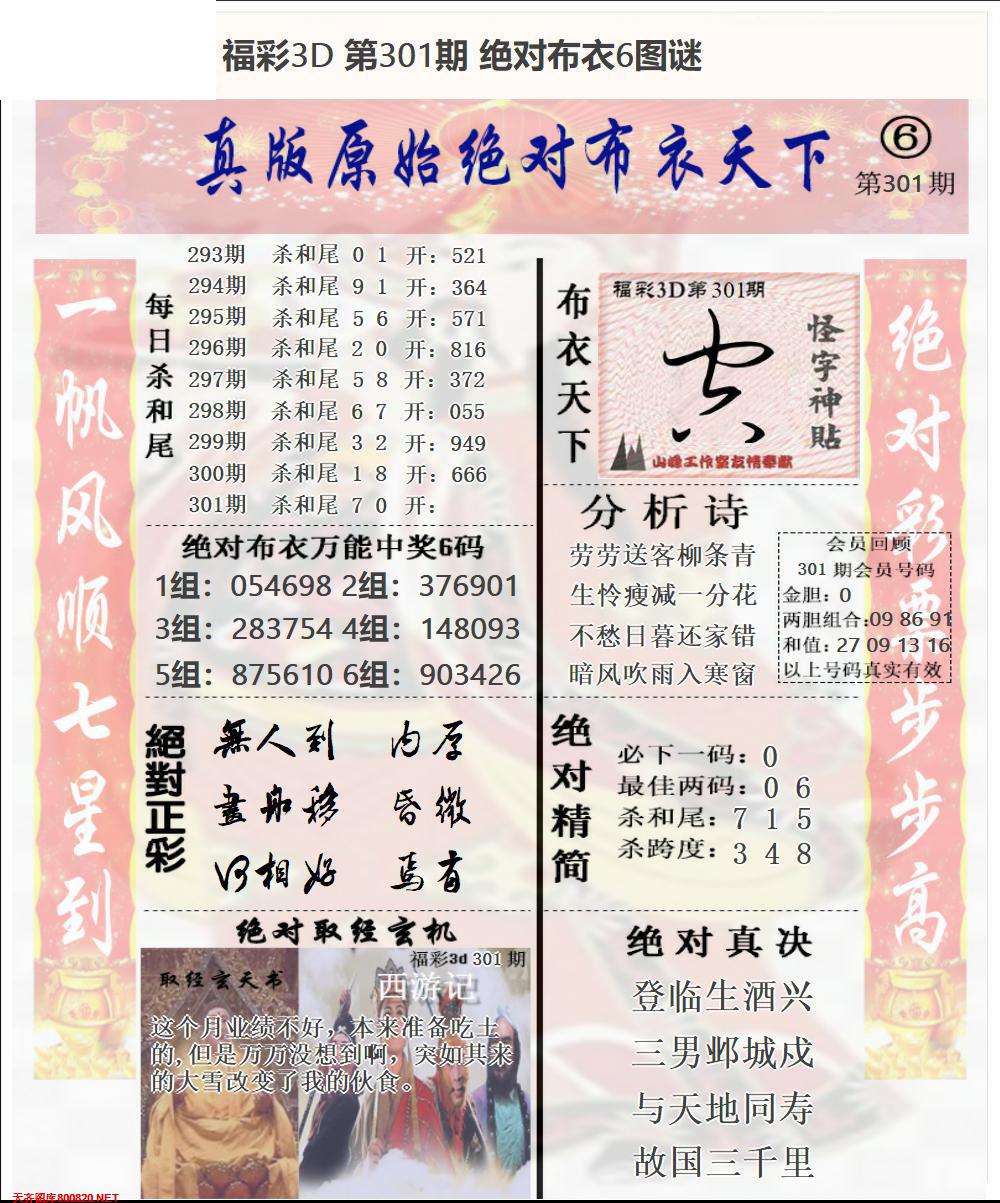 福彩3D 第301期 绝对布衣6图谜
真版原始绝对布衣天下
⑥
第301期
一帆风顺七星到
每日杀和尾
293期 杀和尾 0 1 开：521
294期 杀和尾 9 1 开：364
295期 杀和尾 5 6 开：571
296期 杀和尾 2 0 开：816
297期 杀和尾 5 8 开：372
298期 杀和尾 6 7 开：055
299期 杀和尾 3 2 开：949
300期 杀和尾 1 8 开：666
301期 杀和尾 7 0 开：
绝对布衣万能中奖6码
1组：054698 2组：376901
3组：283754 4组：148093
5组：875610 6组：903426
絕對正彩
無人到 内厚
畫舟移 昏微
河相好 焉有
绝对取经玄机
福彩3d 301期
取经玄天书
西游记
这个月业绩不好，本来准备吃土
的,但是万万没想到啊，突如其来
的大雪改变了我的伙食。
布衣天下
福彩3D第301期
怪字神贴
山峰工作室友情奉献
分析诗
劳劳送客柳条青
生怜瘦减一分花
不愁日暮还家错
暗风吹雨入寒窗
会员回顾
301期会员号码
金胆：0
两胆组合:09 86 91
和值：27 09 13 16
以上号码真实有效
绝对精简
必下一码：0
最佳两码：0 6
杀和尾：7 1 5
杀跨度：3 4 8
绝对真决
登临生酒兴
三男邺城戍
与天地同寿
故国三千里
绝对彩票步步高
天齐图库800820.NET